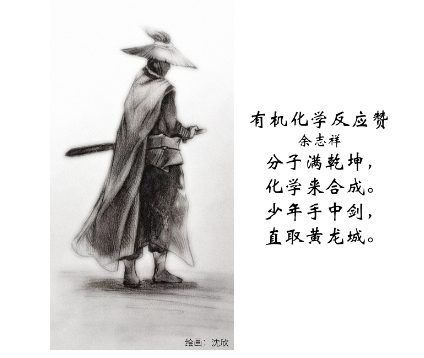 有机化学反应赞
余志祥
分子满乾坤，
化学来合成。
少年手中剑，
直取黄龙城。
绘画：沈欣